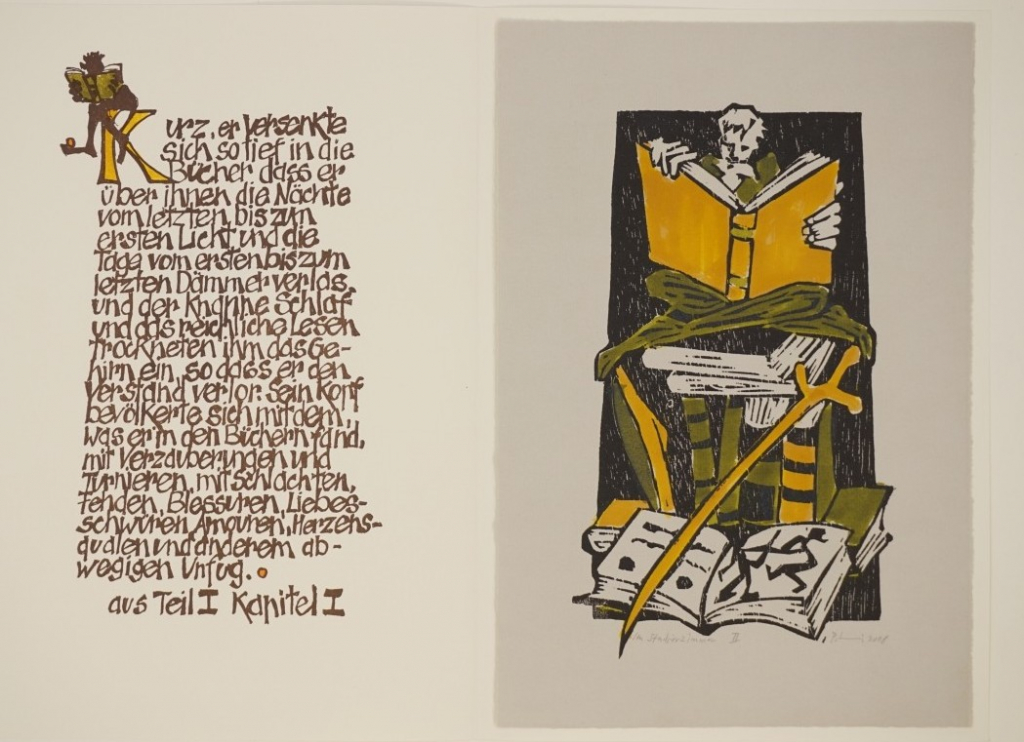 Kurz, er versenkte
sich so tief in die
Bücher, dass er
über ihnen die Nächte
vom letzten bis zum
ersten Licht und die
Tage vom ersten bis zum
letzten Dämmer verlas,
und der knappe Schlaf
und das reichliche Lesen
trockneten ihm das Ge-
hirn ein, so dass er den
Verstand verlor. Sein Kopf
bevölkerte sich mit dem,
was er in den Büchern fand,
mit Verzauberungen und
Turnieren, mit Schlachten,
Fehden, Blessuren, Liebes-
schwüren, Amouren, Herzens-
qualen und anderem ab-
wegigen Unfug.
aus Teil I Kapitel I
II